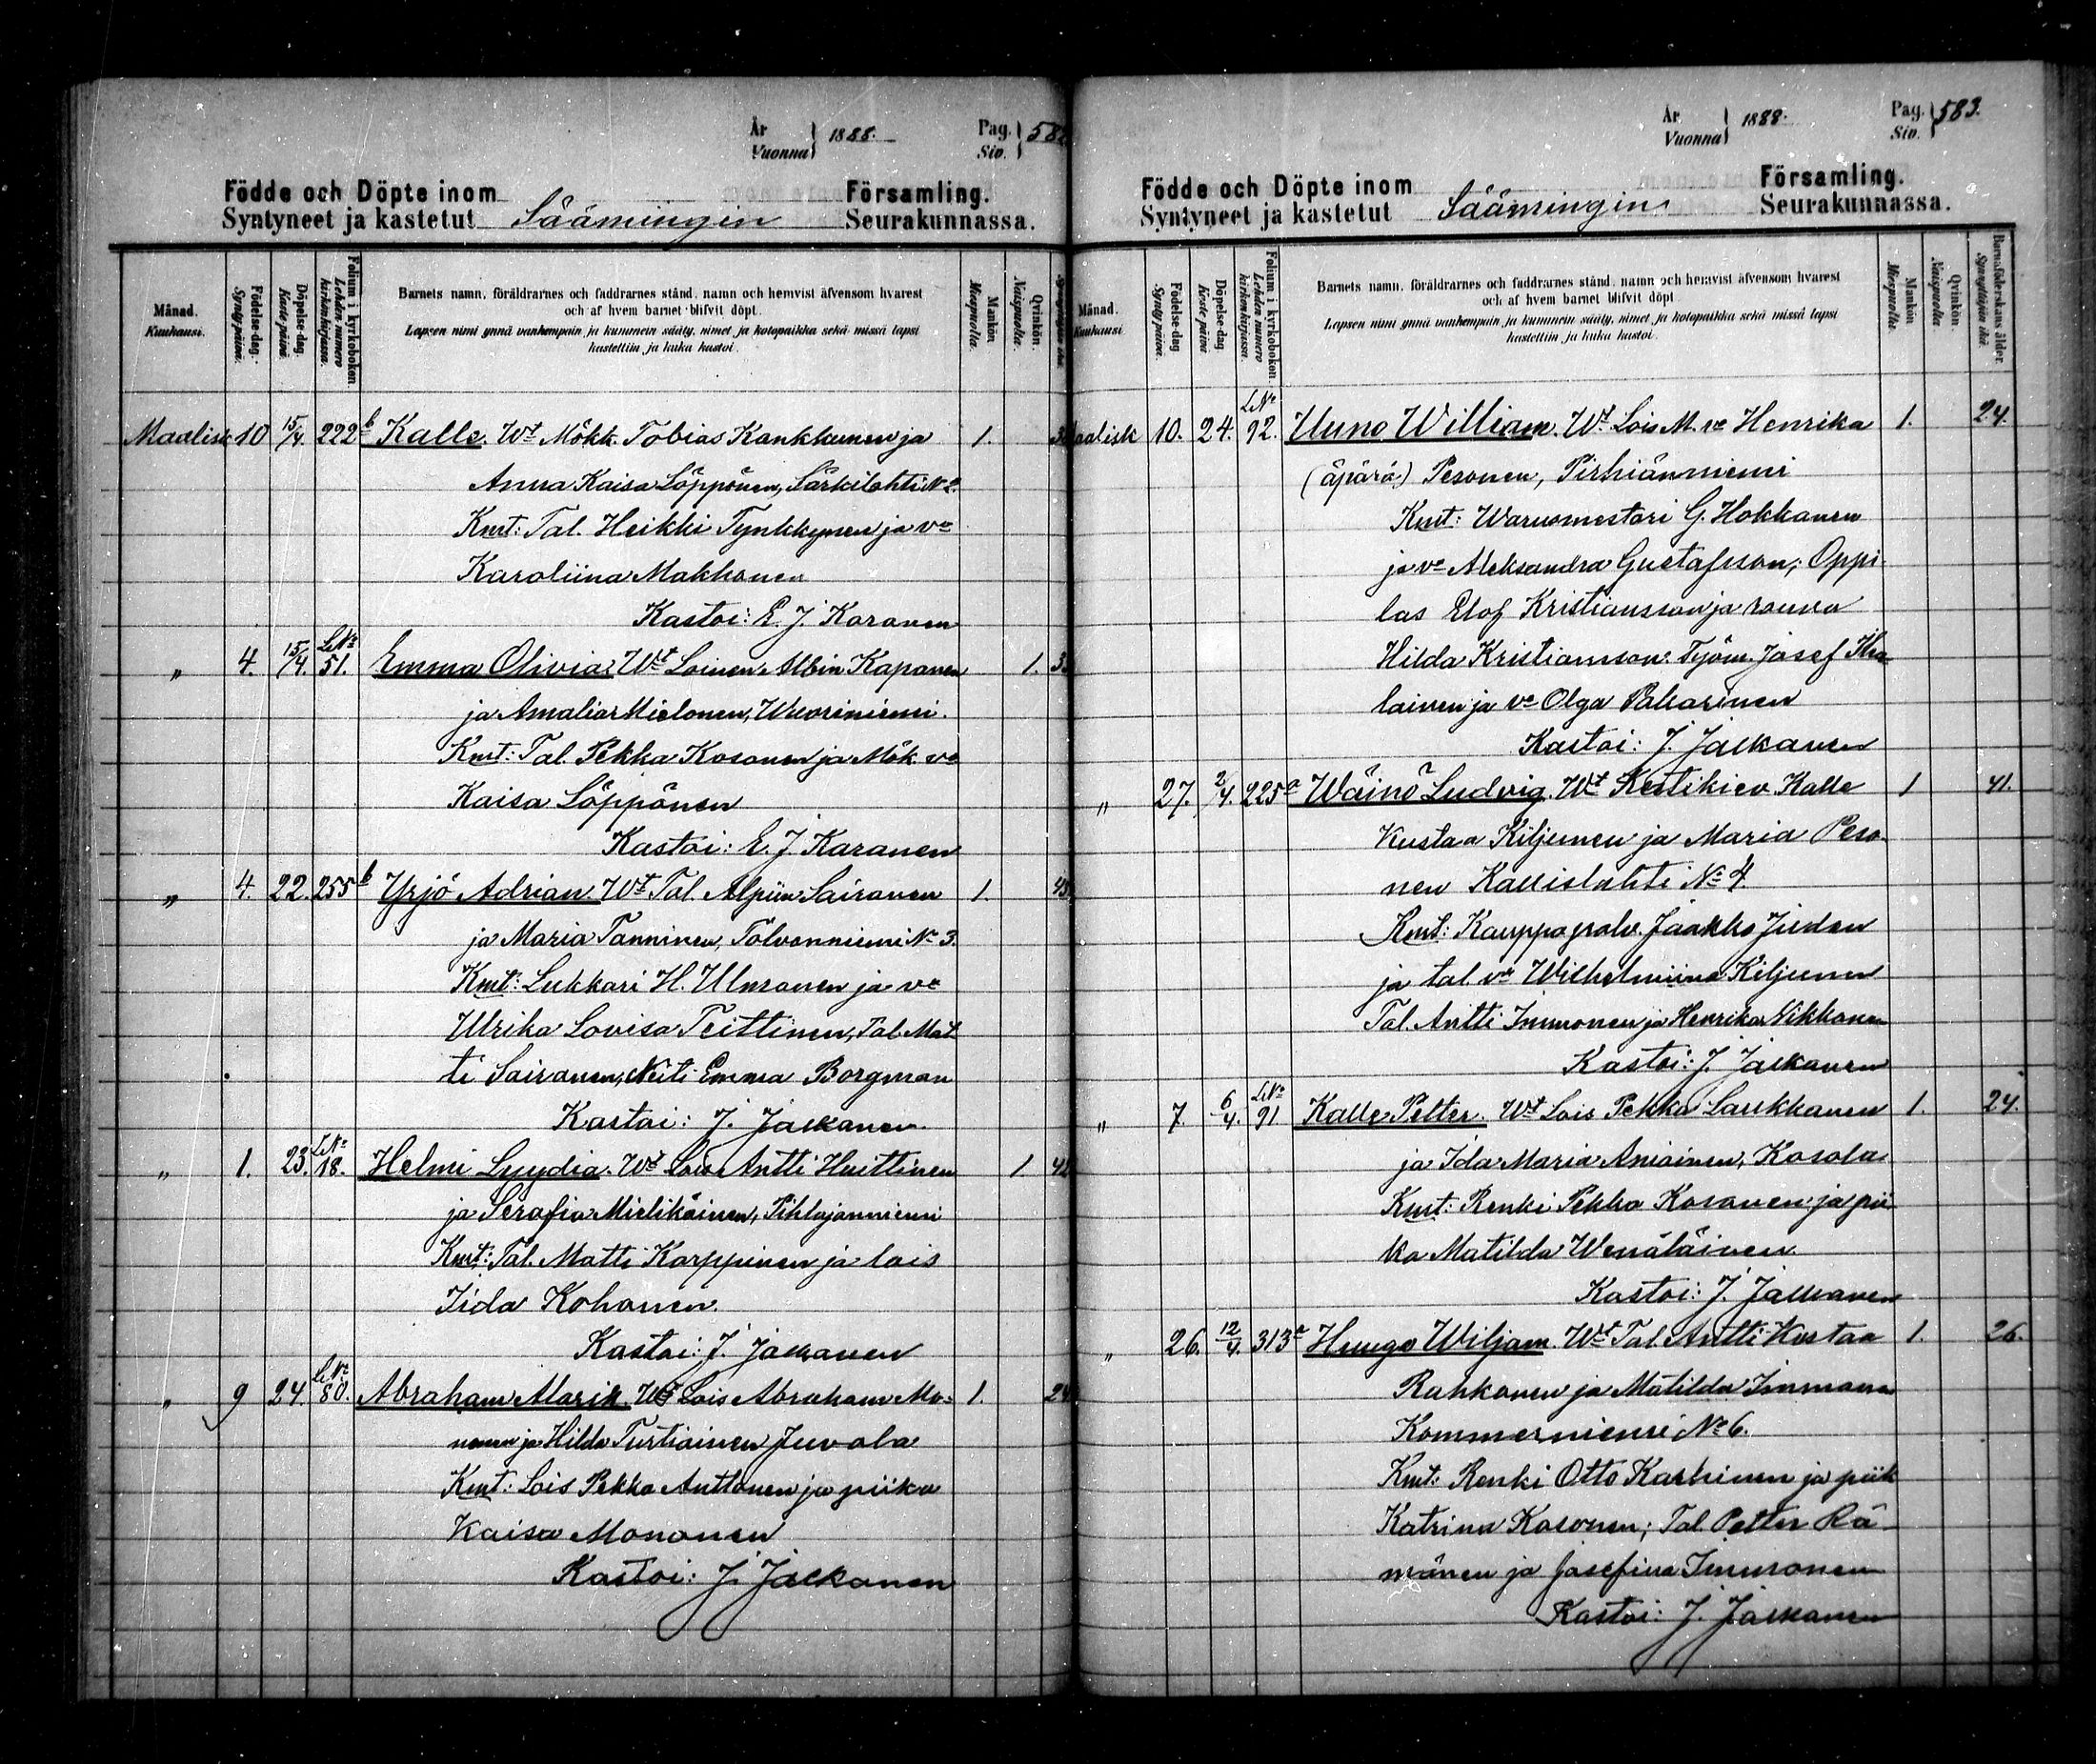 År
Vuonna } 1888.
Pag.
Siv. } 582
Födde och Döpte inom Församling.
Syntyneet ja kastetut Säämingin Seurakunnassa.
Månad.
Kuukausi.
Födelse-dag.
Synty päivä.
Döpelse-dag
Kaste päivä
Folium i kyrkoboken.
Lehden numero kirkonkirjassa.
Barnets namn, föräldrarnes och faddrarnes stånd, namn och hemvist äfvensom hvarest
och af hvem barnet blifvit döpt.
Lapsen nimi ynnä vanhempain ja kummein sääty, nimet ja kotopaikka sekä missä lapsi
kastettiin ja kuka kastoi.
Mankön
Miespuolia.
Qvinkön.
Naispuolia.
Maalisk 10 15/4. 222 b Kalle. Wt Mökk. Tobias Kankkunen ja 1.
Anna Kaisa Löppönen, Särkilahti No
Kmt: Tal. Heikki Tynkkynen ja va
Karoliina Makkonen
Kastoi: E. J. Karanen
" 4. 15/4. LNo 51. Emma Olivia. Wt Loinen Albin Kaponen 1.
ja Amalia Mielonen, Wuoriniemi.
Kmt: Tal. Pekka Kosonen ja Mök va
Kaisa Löppönen
Kastoi: E. J. Karanen
" 4. 22. 255 b Yrjö Adrian. Wt Tal. Alpiin Sairanen 1.
ja Maria Tanninen, Tolvanniemi No 3.
Kmt: Lukkari H. Ulmanen ja va
Ulrika Lovisa Teittinen, Tal. Mat
ti Sairanen, Neiti Emma Borgman
Kastoi: J. Jalkanen
" 1. 23. LNo 18. Helmi Lyydia. Wt Lois Antti Huittinen 1
ja Serafia Mielikäinen, Pihlajanniemi
Kmt: Tal. Matti Karppinen ja lois
Iida Kohonen.
Kastoi: J. Jalkanen
" 9 24. LNo 80. Abraham Alarik. Wt Lois Abraham Mo- 1. 24
nonen ja Hilda Turtiainen Juvola
Kmt: Lois Pekka Anttonen ja piika
Kaisa Mononen
Kastoi: J. Jalkanen
År
Vuonna } 1888.
Pag.
Siv. } 583.
Födde och Döpte inom Församling.
Syntyneet ja kastetut Säämingin Seurakunnassa.
Månad.
Kuukausi
Födelse-dag
Synty päivä.
Döpelse-dag
Kaste päivä
Folium i kyrkoboken.
Lehden numero kirkonkirjassa.
Barnets namn, föräldrarnes och faddrarnes stånd, namn och hemvist äfvensom hvarest
och af hvem barnet blifvit döpt.
Lapsen nimi ynnä vanhempain ja kummein sääty, nimet ja kotopaikka sekä missä lapsi
kastettiin ja kuka kastoi.
Mankön
Miespuolia.
Qvinkön.
Naispuolia
Barnaföderskans ålder.
Synnyttäjän ikä.
aalisk 10. 24. LNo 92. Uuno William. Wt Lois M. va Henrika 1. 24.
(äpärä) Pesonen, Pirhiänniemi
Kmt: Warusmestari G. Hokkanen
ja va Aleksandra Gustafsson; Oppi-
las Elof Kristiansson ja rouva
Hilda Kristiansson. Työm. Josef Iha
lainen ja va Olga Pakarinen
Kastoi: J. Jalkanen
" 27. 2/4. 225 a Wäinö Ludvig. Wt Kestikiev. Kalle 1 41.
Kustaa Kiljunen ja Maria Peso-
nen Kallislahti No 4.
Kmt: Kauppapalv. Jaakko Juden
ja tal. va Wilhelmiina Kiljunen
Tal. Antti Immonen ja Henrika Nikkonen
Kastoi: J. Jalkanen
" 7. 6/4. LNo 91. Kalle Petter. Wt Lois Pekka Laukkanen 1. 24.
ja Ida Maria Aniainen, Kosola
Kmt: Renki Pekka Kosonen ja pii
ka Matilda Wenäläinen
Kastoi: J. Jalkanen
" 26. 12/4. 313 a Huugo Wiljam. Wt Tal. Antti Kustaa 1. 26.
Rahkonen ja Matilda Immonen
Kommerniemi No 6.
Kmt: Renki Otto Karhinen ja piik
Katrina Kosonen; Tal. Petter Rä
mänen ja Josefina Immonen
Kastoi: J. Jalkanen